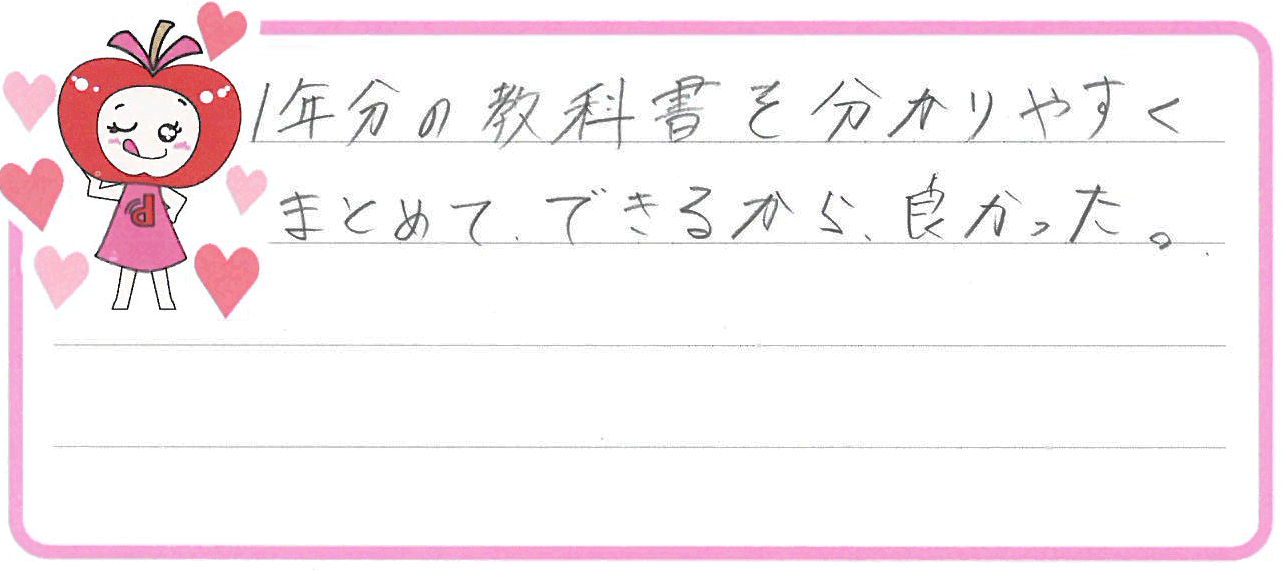 1年分の教科書を分かりやすく
まとめて、できるから、良かった。